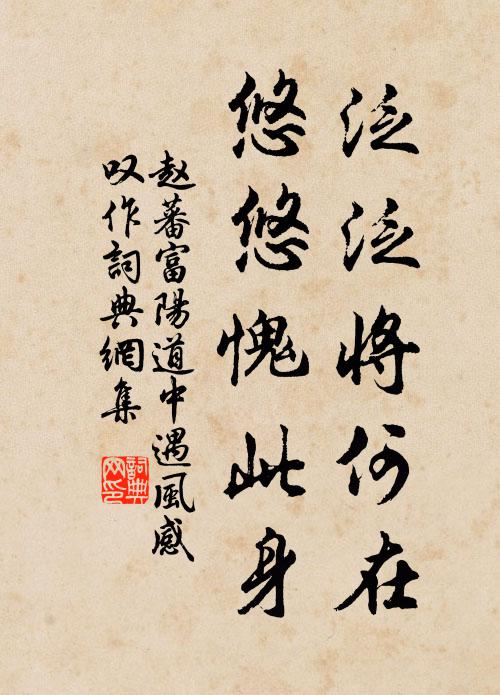 泛泛将何在
悠悠愧此身
赵蕃富陽道中遇風感
叹作詞典網集
詞典
网印